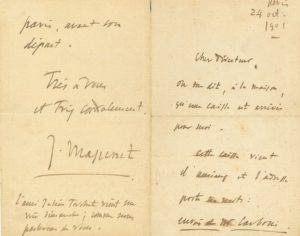 Paris
24 oct.
1901
Cher Directeur,
on me dit, à la maison,
qu'une caisse est arrivée
pour moi.
Cette caisse vient
et l'adresse
porte ces mots:
envoi de Mr Carboni
Paris, avant son
départ.
Très à vous
et très cordialement.
J. Massenet
L'ami Julien Torchet vient me
voir dimanche; comme nous
parlerons de vous.